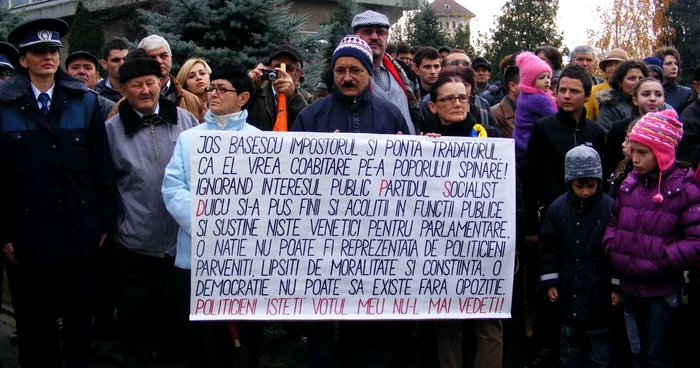 JOS BASESCU IMPOSTORUL SI PONTA TRADATORUL,
CA EL VREA COABITARE PE-A POPORULUI SPINARE!
IGNORAND INTERESUL PUBLIC PARTIDUL SOCIALIST
DUICU SI-A PUS FINII SI ACOLITII IN FUNCTII PUBLICE
SI SUSTINE NISTE VENETICI PENTRU PARLAMENTARE.
O NATIE NU POATE FI REPREZENTATA DE POLITICIENI
PARVENITI, LIPSITI DE MORALITATE SI CONSTIINTA, O
DEMOCRATIE NU POATE SA EXISTE FARA OPOZITIE.
POLITICIENI ISTETI VOTUL MEU NU-L MAI VEDETI!